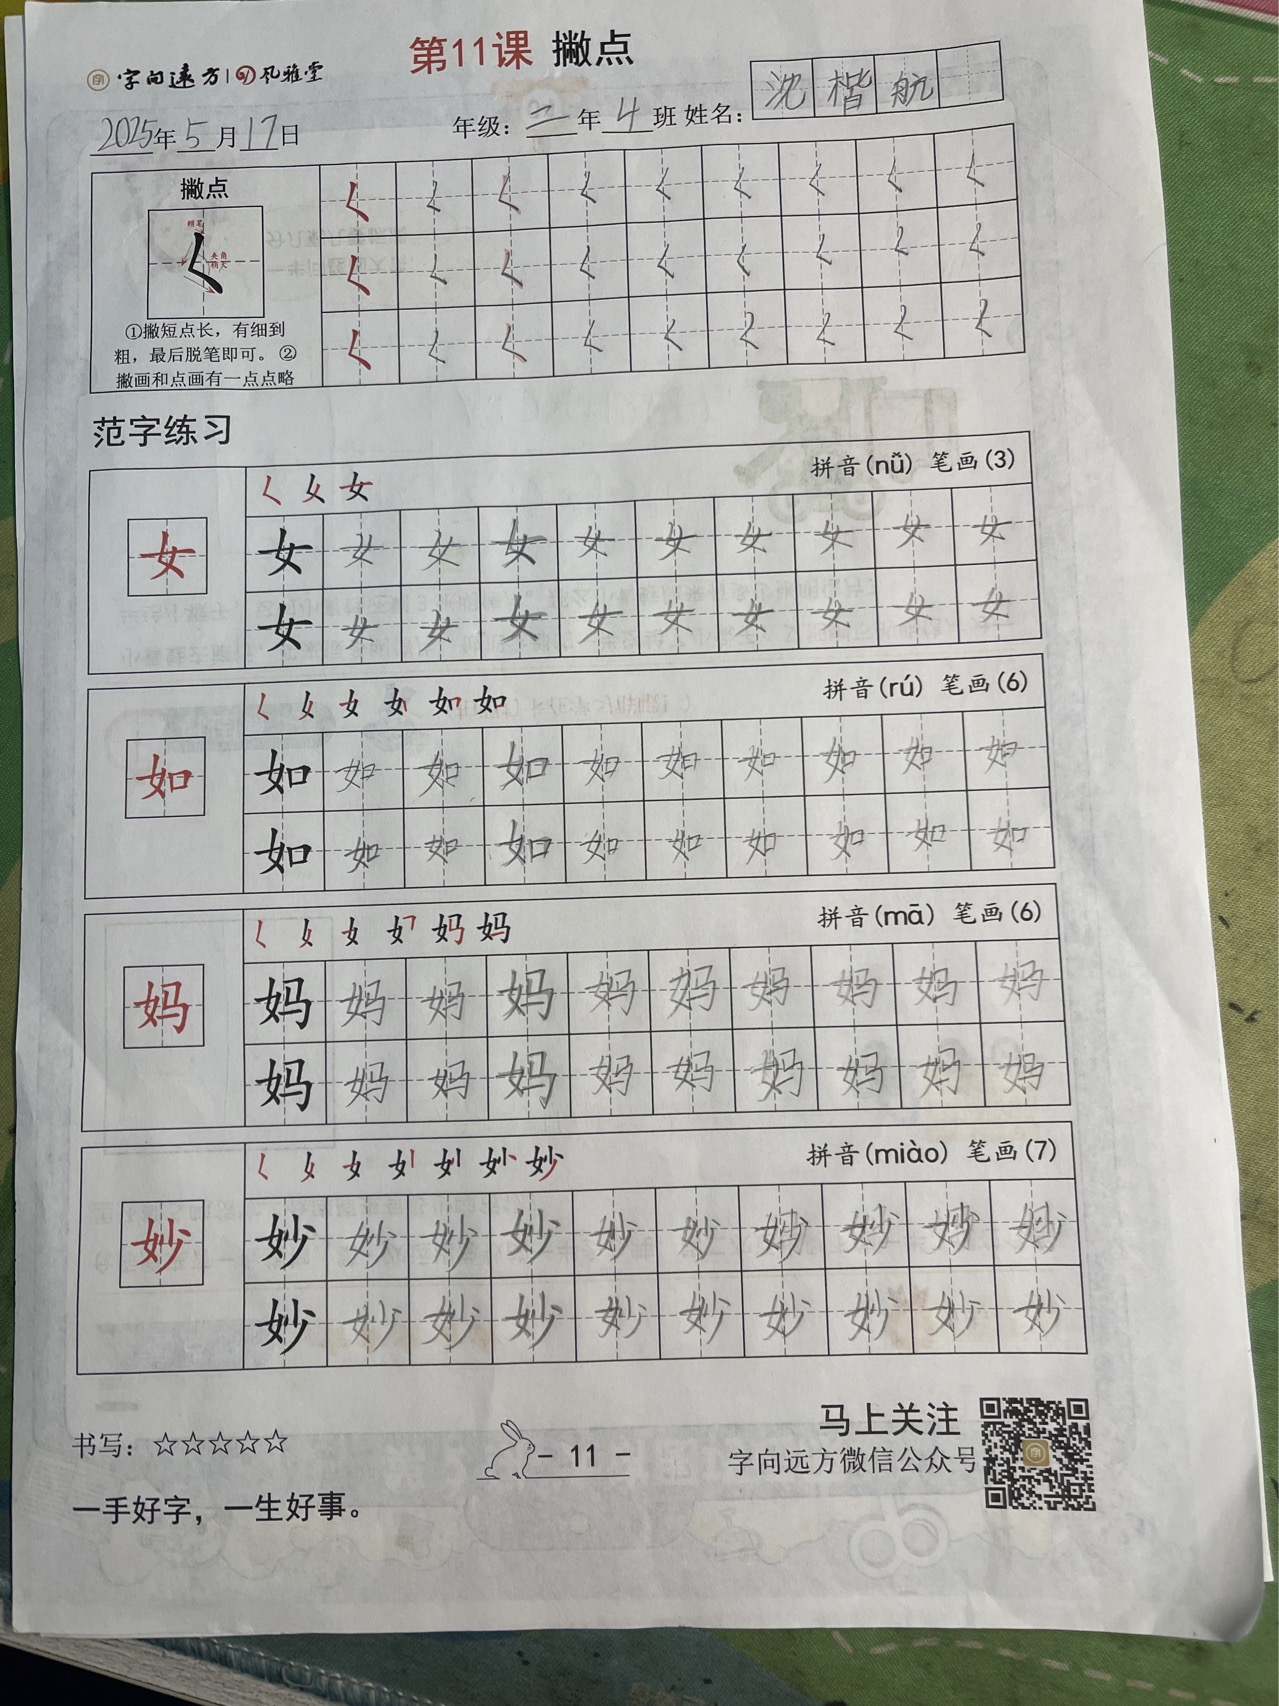 字向远方 风雅堂
第11课 撇点
2025年5月17日
年级：二年4班 姓名：沈楷航
撇点
稍笔
夹角
稍大
①撇短点长，有细到
粗，最后脱笔即可。②
撇画和点画有一点点略
范字练习
女
拼音(nǚ) 笔画(3)
女 女 女 女 女 女 女 女 女 女
女 女 女 女 女 女 女 女 女 女
如
拼音(rú) 笔画(6)
如 如 如 如 如 如 如 如 如 如
如 如 如 如 如 如 如 如 如 如
妈
拼音(mā) 笔画(6)
妈 妈 妈 妈 妈 妈 妈 妈 妈 妈
妈 妈 妈 妈 妈 妈 妈 妈 妈 妈
妙
拼音(miào) 笔画(7)
妙 妙 妙 妙 妙 妙 妙 妙 妙 妙
妙 妙 妙 妙 妙 妙 妙 妙 妙 妙
书写：☆☆☆☆☆
- 11 -
马上关注
字向远方微信公众号
一手好字，一生好事。